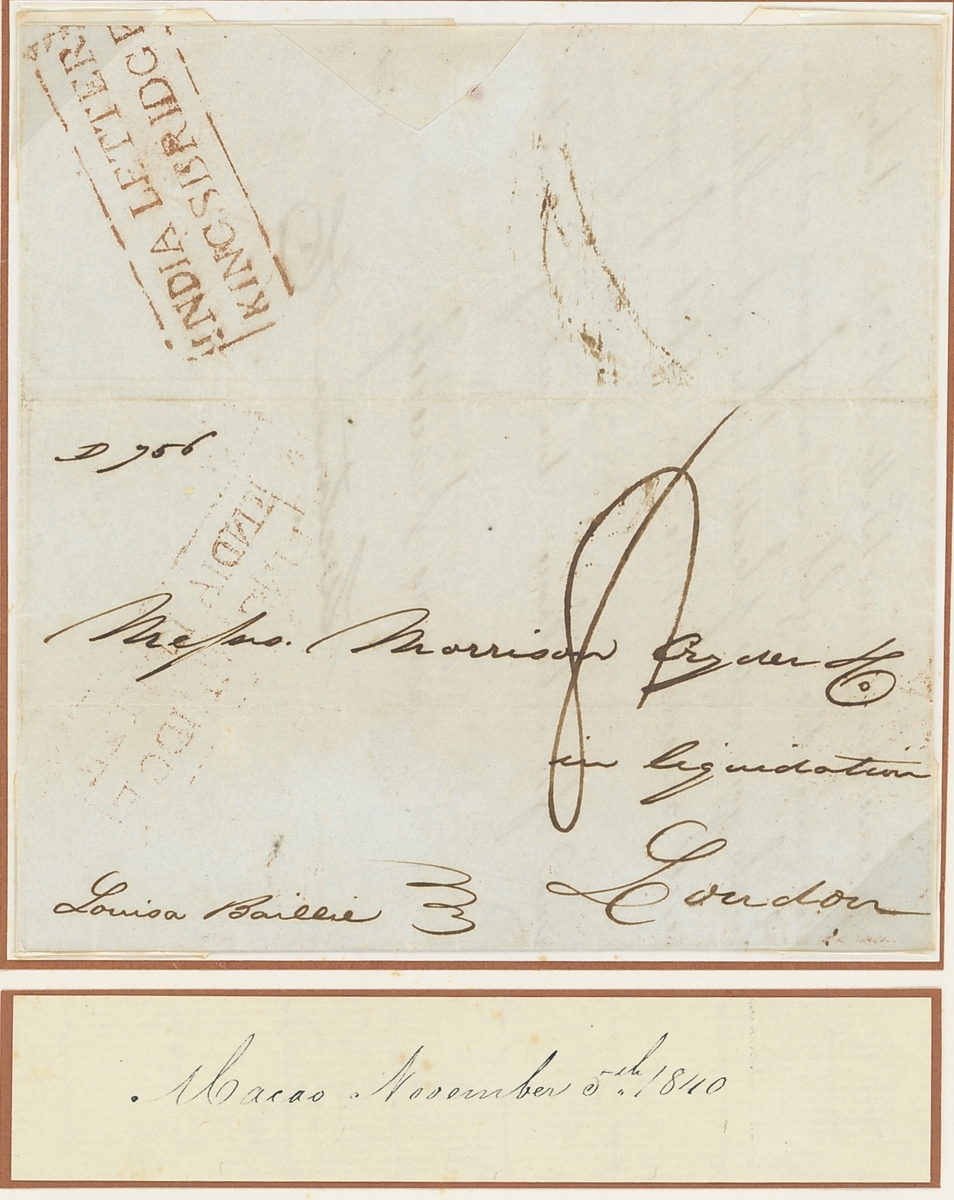 INDIA LETTER
KINGSBRIDGE
D 756
INDIA
Messrs. Morrison Cryder & Co
in liquidation
London
Louisa Baillie
Macao November 5th. 1840